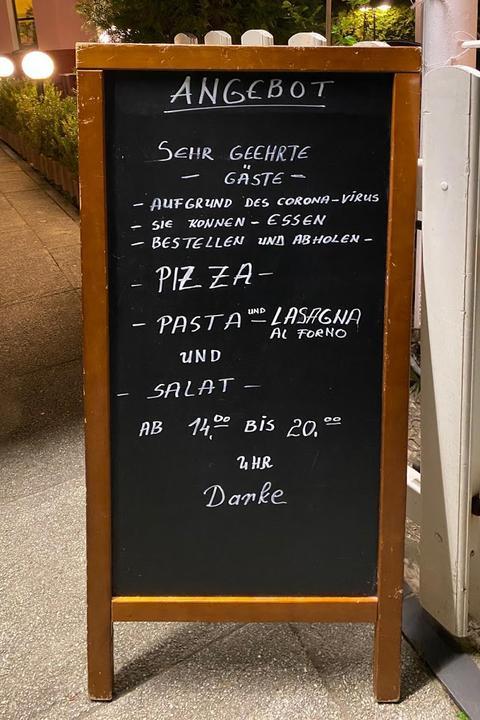 ANGEBOT
SEHR GEEHRTE
- GÄSTE -
- AUFGRUND DES CORONA-VIRUS
- SIE KONNEN - ESSEN
- BESTELLEN UND ABHOLEN -
- PIZZA -
- PASTA UND - LASAGNA
AL FORNO
UND
- SALAT -
AB 14.00 BIS 20.00
UHR
Danke